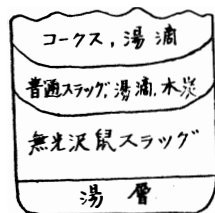 コークス，湯滴
普通スラッグ，湯滴，木炭
無光沢鼠スラッグ
湯層